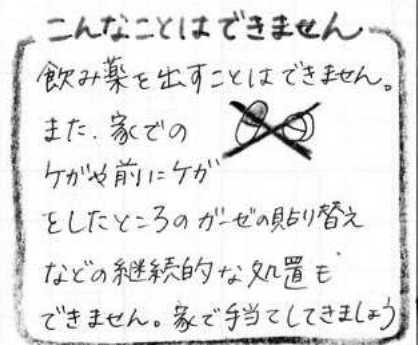 こんなことはできません
飲み薬を出すことはできません。
また、家での
ケガや前にケガ
をしたところのガーゼの貼り替え
などの継続的な処置も
できません。家で手当てしてきましょう